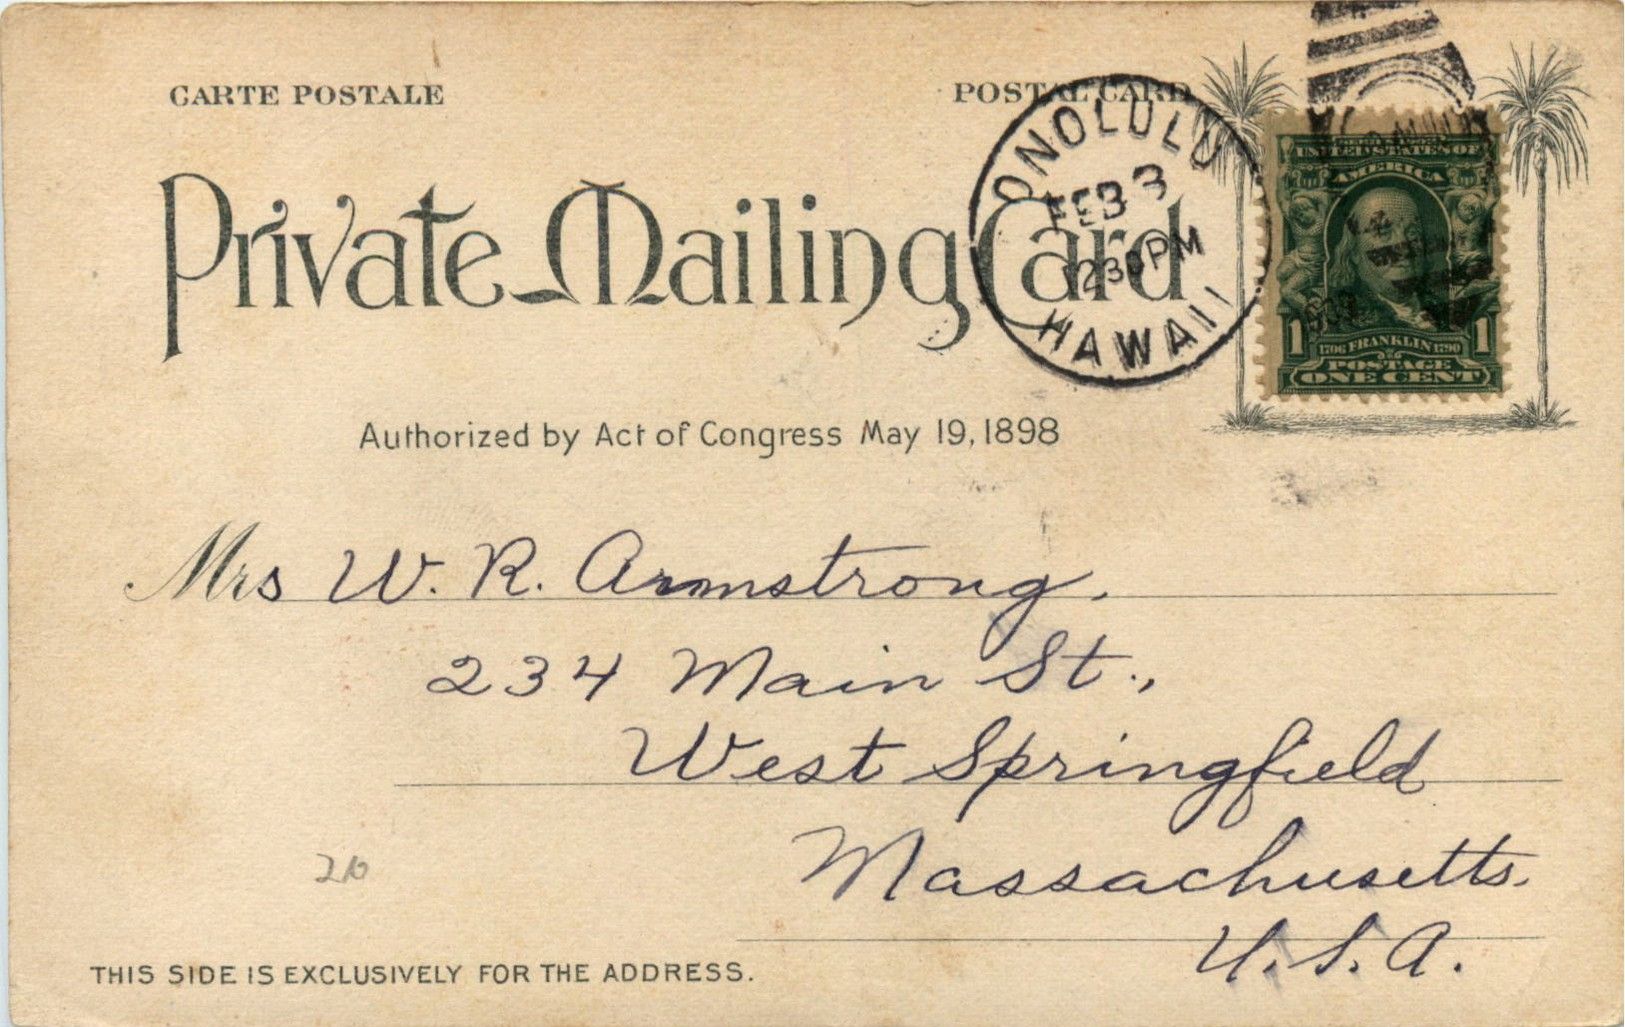 CARTE POSTALE
POSTAL CARD
Private Mailing Card
HONOLULU
FEB 3
1230 PM
HAWAII
UNITED STATES OF
AMERICA
1 1706 FRANKLIN 1790 1
POSTAGE
ONE CENT
Authorized by Act of Congress May 19, 1898
Mrs W. R. Armstrong.
234 Main St.,
West Springfield
Massachusetts.
U.S.A.
THIS SIDE IS EXCLUSIVELY FOR THE ADDRESS.